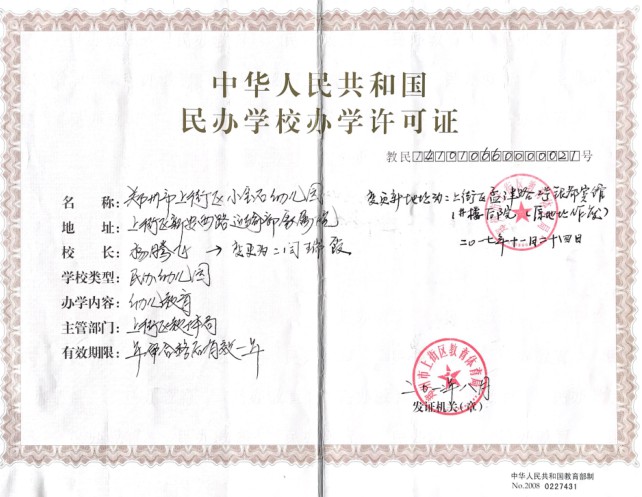 中华人民共和国
民办学校办学许可证
教民141010660000021号
名 称：郑州市上街区小金石幼儿园
地 址：上街区新安西路
校 长： →变更为：闫瑞
学校类型：民办幼儿园
办学内容：幼儿教育
主管部门：上街区教体局
有效期限：年审合格后有效一年
变更新地址为：上街区孟津路
楼后院（原地址作废）
二〇一七年十二月二十四日
郑州市上街区教育体育局
年八月
发证机关(章)
中华人民共和国教育部制
No.2008 0227431